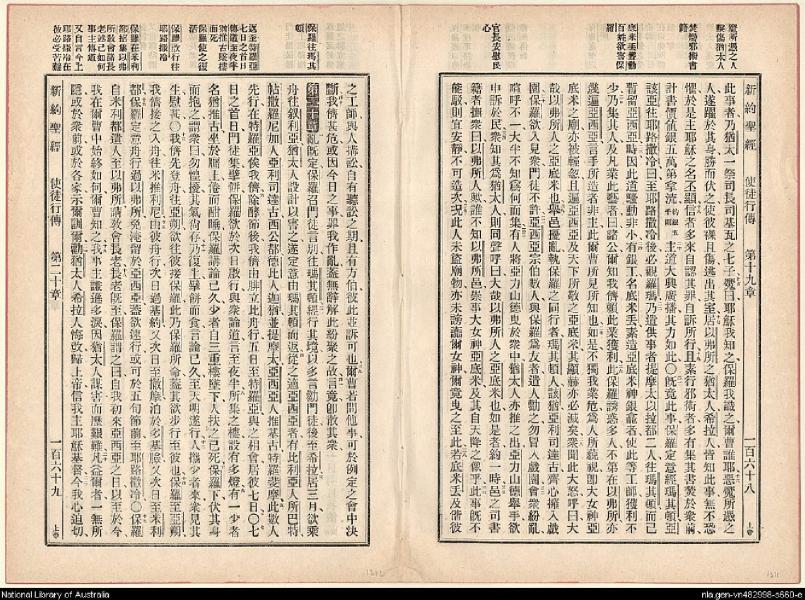 新約聖經 使徒行傳 第十九章 一百六十八 上帝
魔所憑之人
擊傷猶太人
焚燬邪術書
籍
底米丟聳動
百姓欲害保
羅
官長安慰民
心
此事者乃猶太一祭司長司基瓦之七子魔曰耶穌我知之保羅我識之爾曹誰耶惡魔所憑之
人遂躍於其身勝而伏之使彼裸且傷逃出其室居以弗所之猶太人希拉人皆知此事無不恐
懼於是主耶穌之名丕顯信者多來自認其罪自訴所行且素行邪術者多有集其書焚於衆前
計書價值銀五萬
主道大興廣播其力如此〇旣竟此事保羅定意經瑪其頓亞
該亞往耶路撒冷曰至耶路撒冷後必觀羅瑪乃遣供事者提摩太以拉都二人往瑪其頓而己
暫留亞西亞時因此道騷動非小有銀工名底米丟素造亞底米神銀龕者使此等工師獲利不
少乃集其人及凡業此藝者曰諸公爾知我儕賴此業獲利此保羅誘惑多人不第在以弗所亦
幾遍亞西亞言手所造者非主此爾曹所見所知也如是不獨我業危爲人所藐視卽大女神亞
底米之廟亦被輕忽且遍亞西亞及天下所敬之亞底米其顯赫亦必滅矣衆聞此大怒呼曰大
哉以弗所人之亞底米也舉邑擾亂執保羅之同行者瑪其頓人該猶亞里達古齊心擁入戲
園保羅欲入見衆門徒不許亞西亞宗伯數人與保羅爲友者遣人勸之勿冒入戲園會衆紛亂
喧呼不一大半不知爲何而集有人將亞力山德曳於衆中猶太人亦推之出亞力山德舉手欲
申訴於民衆知其爲猶太人則同聲呼曰大哉以弗所人之亞底米也如是者約一時邑之司書
籍者撫衆曰以弗所人歟誰不知以弗所邑崇事大女神亞底米及其自天降之像乎此事旣不
能駁則宜安靜不可造次況此人未盜廟物亦未謗讟爾女神爾竟曳之至此若底米丟及偕彼
新約聖經 使徒行傳 第二十章 一百六十九 上帝
保羅往瑪其
頓
返至特羅亞
七日之首日
傳道至夜半
猶推古墜樓
而死
保羅使之復
活
保羅啟行往
耶路撒冷
保羅在米利
都招集以弗
所敎會長
老述己如何
事主傳道
又自言今上
耶路撒冷在
彼必受苦難
之工師與人搆訟自有聽訟之期且有方伯彼此並訴可也爾曹若問他事可於例定之會中決
斷我儕甚危或因今日之事罪我作亂蓋無辭解此紛聚之故言竟卽散其衆
第二十章 亂旣定保羅召門徒言別往瑪其頓經行其境以多言勸門徒後至希拉居三月欲乘
舟往叙利亞猶太人設計以害之遂定意由瑪其頓而返從之適亞西亞者有比利亞人所巴特
帖撒羅尼加人亞利司達古西公都德比人迦猶並提摩太亞西亞人推基古特羅斐摩此數人
先行在特羅亞俟我儕除酵節後我儕由腓立比舟行五日至特羅亞與之相會居彼七日〇七
日之首日門徒集擘餅保羅欲於次日啟行與衆論道言至夜半所集之樓設有多燈有一少者
名猶推古坐於牖上倦而酣睡保羅講論已久少者自三重樓墜下人扶之已死保羅下伏其身
而抱之謂衆曰勿惶擾其氣尚存乃復上擘餅而食言論已久至天明遂行人攜少者來衆見其
生慰甚〇我儕先登舟往亞朔欲在彼接保羅此乃保羅所命蓋其欲步行往彼也保羅至亞朔
我儕接之入舟往米推利尼由彼舟行次日過基約又次日至撒摩泊於多基臉又次日至米利
都保羅定意舟行過以弗所免淹留於亞西亞蓋欲速行或可於五旬節前至耶路撒冷〇保羅
自米利都遣人至以弗所請敎會長老長老旣至保羅謂之曰自我初來亞西亞之日以至於今
我在爾曹中始終如何爾曹知之我事主謙遜多淚因猶太人謀害而歷艱難凡益爾者一無所
隱或於衆前或於各家示爾訓爾勸猶太人希拉人悔改歸上帝信我主耶穌基督今我心迫切
National Library of Australia
nla.gen-vn482998-s660-e